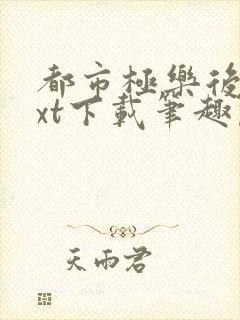 都市極樂後
xt下載筆趣
天雨君